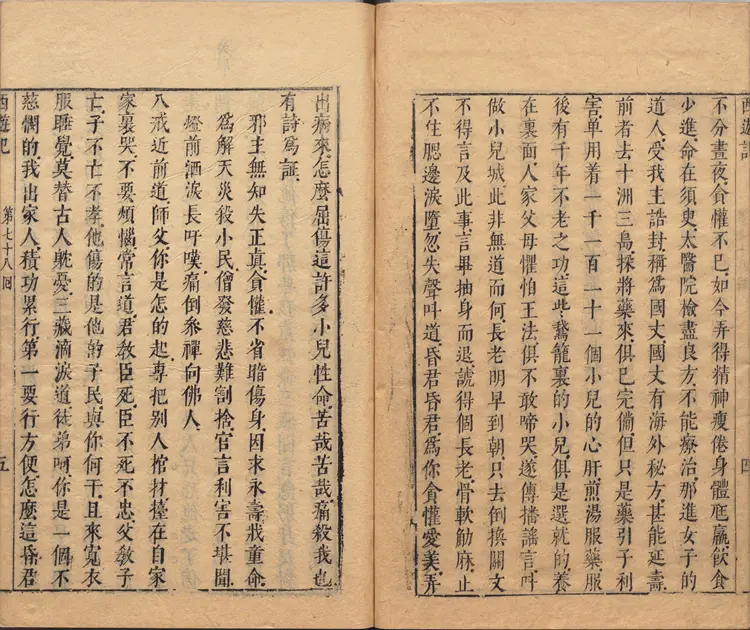 不分晝夜貪懽不巳如今弄得精神瘦倦身體尫羸飲食
少進命在須臾太醫院檢盡良方不能療治那進女子的
道人受我主誥封稱爲國丈國丈有海外秘方甚能延壽
前者去十洲三島採將藥來俱巳完備但只是藥引子利
害單用着一千一百一十一個小兒的心肝煎湯服藥服
後有千年不老之功這些鵞籠裏的小兒俱是選就的養
在裏面人家父母懼怕王法俱不敢啼哭遂傳播謡言叫
做小兒城此非無道而何長老明早到朝只去倒換關文
不得言及此事言畢抽身而退諕得個長老骨軟觔麻止
不住腮邊淚墮忽失聲叫道昏君昏君爲你貪懽愛美弄
出病來怎麽屈傷這許多小兒性命苦哉苦哉痛殺我也
有詩爲証
邪主無知失正真貪懽不省暗傷身因求永壽戕童命
爲解天災殺小民僧發慈悲難割捨官言利害不堪聞
燈前洒淚長吁嘆痛倒叅禪向佛人
八戒近前道師父你是怎的起專把别人棺材擡在自家
家裏哭不要煩惱常言道君教臣死臣不死不忠父教子
亡子不亡不孝他傷的是他的子民與你何干且來寬衣
服睡覺莫替古人躭憂三藏滴淚道徒弟呵你是一個不
慈憫的我出家人積功累行第一要行方便怎麽這昏君
西遊記 第七十八回 五